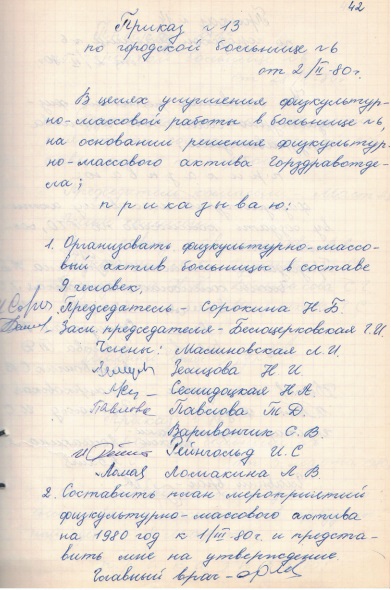 42
Приказ № 13
по городской больнице № 6
от 2/II-80г.
В целях улучшения физкультур-
но-массовой работы в больнице № 6,
на основании решения физкультур-
но-массового актива Горздравотде-
ла;
приказываю:
1. Организовать физкультурно-массо-
вый актив больницы в составе
9 человек.
Председатель - Сорокина Н.Б.
Зам. председателя - Белоцерковская Г.И.
Члены: Малиновская Л.И.
Земцова Н И
Семидоцкая Н.А.
Павлова Павлова Т.Д.
Варивончик С.В.
Рейнгольд И.С
Ломакина Л.В
2. Составить план мероприятий
физкультурно-массового актива
на 1980 год к 1/III-80г. и предста-
вить мне на утверждение.
Главный врач -